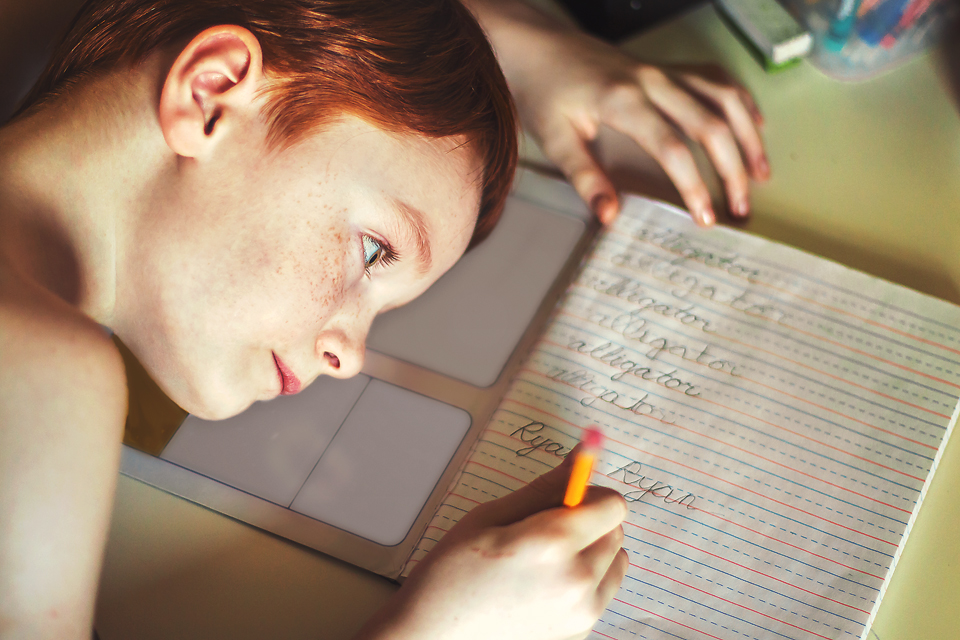 alligator
alligator
alligator
alligator
alligator
alligator
Ryan Ryan